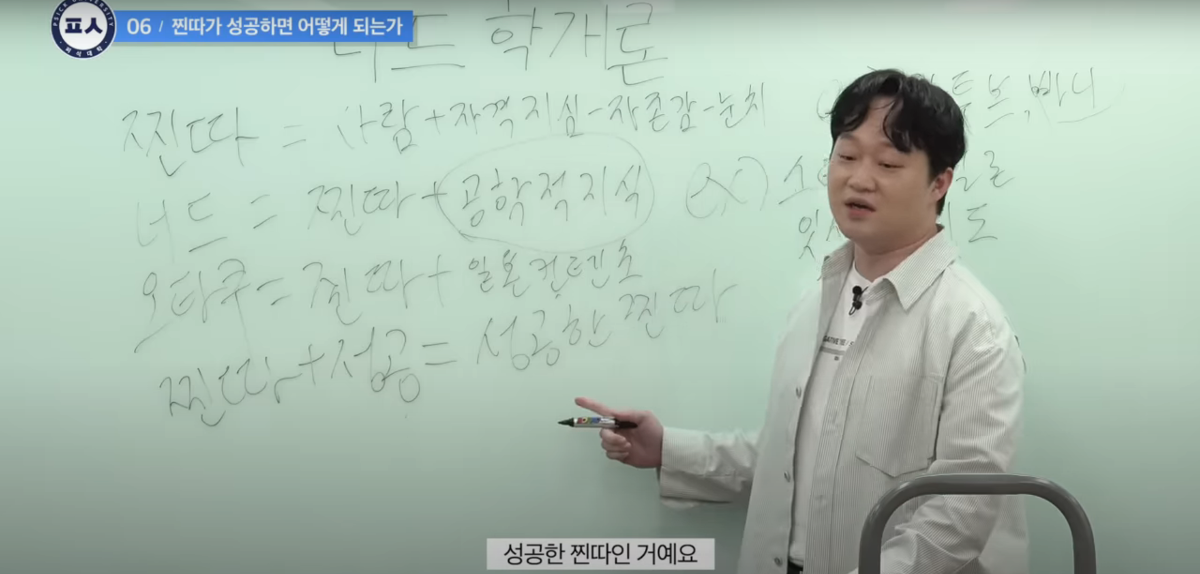 06 / 찐따가 성공하면 어떻게 되는가
너드 학개론
찐따 = 사람+자격지심-자존감-눈치
너드 = 찐따+공학적지식 (ex)
오타쿠= 찐따+일본컨텐츠
찐따+성공= 성공한 찐따
성공한 찐따인 거예요